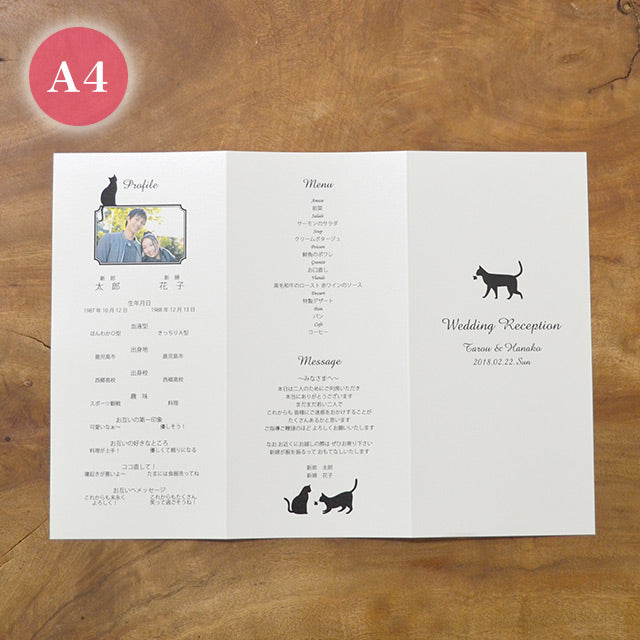 A4
Profile
新郎 新婦
太郎 花子
生年月日
1987年10月12日 1988年12月13日
血液型
ほんわかO型 きっちりA型
出身地
鹿児島市 鹿児島市
出身校
西郷高校 西郷高校
趣味
スポーツ観戦 料理
お互いの第一印象
可愛いなぁ〜 優しそう！
お互いの好きなところ
料理が上手！ 優しくて頼りになる
ココ直して！
寝起きが悪いよ〜 たまには食器洗ってね
お互いへメッセージ
これからも末永く これからもたくさん
よろしく！ 笑って過ごそうね！
Menu
Amuse
前菜
Salade
サーモンのサラダ
Soup
クリームポタージュ
Poisson
鮮魚のポワレ
Granité
お口直し
Viande
黒毛和牛のロースト 赤ワインのソース
Dessert
特製デザート
Pain
パン
Café
コーヒー
Message
〜みなさまへ〜
本日は二人のためにご列席いただき
本当にありがとうございます
まだまだ若い二人で
これからも 皆様にご迷惑をおかけすることが
たくさんあるかと思います
ご指導ご鞭撻のほど よろしくお願いいたします
なお お近くにお越しの際は ぜひお寄り下さい
新婦が腕を振るって おもてなしいたします
新郎 太郎
新婦 花子
Wedding Reception
Tarou & Hanako
2018.02.22.Sun